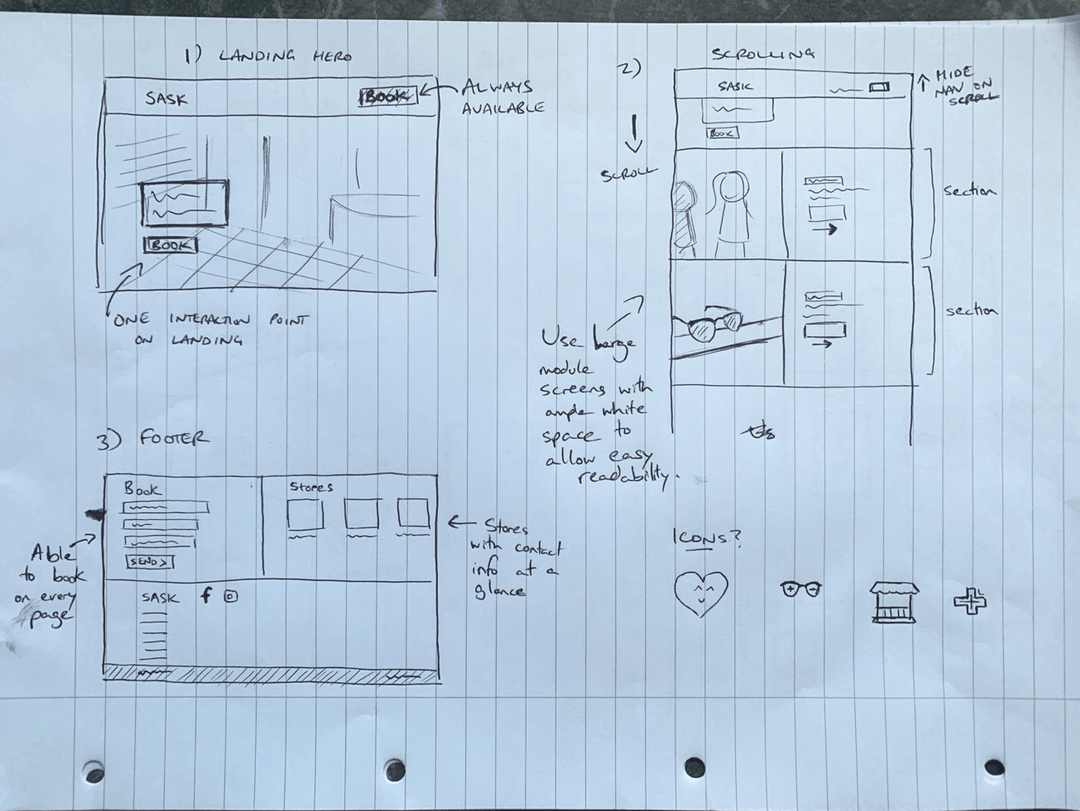 1) LANDING HERO
SASK
BOOK
ALWAYS
AVAILABLE
BOOK
ONE INTERACTION POINT
ON LANDING
2)
SCROLLING
SASK
HIDE
NAV ON
SCROLL
BOOK
SCROLL
section
section
Use Large
module
screens with
ample white
space to
allow easy
readability.
3) FOOTER
Book
SEND >
Stores
SASK f
Able
to book
on every
page
Stores
with contact
info at a
glance
ICONS?